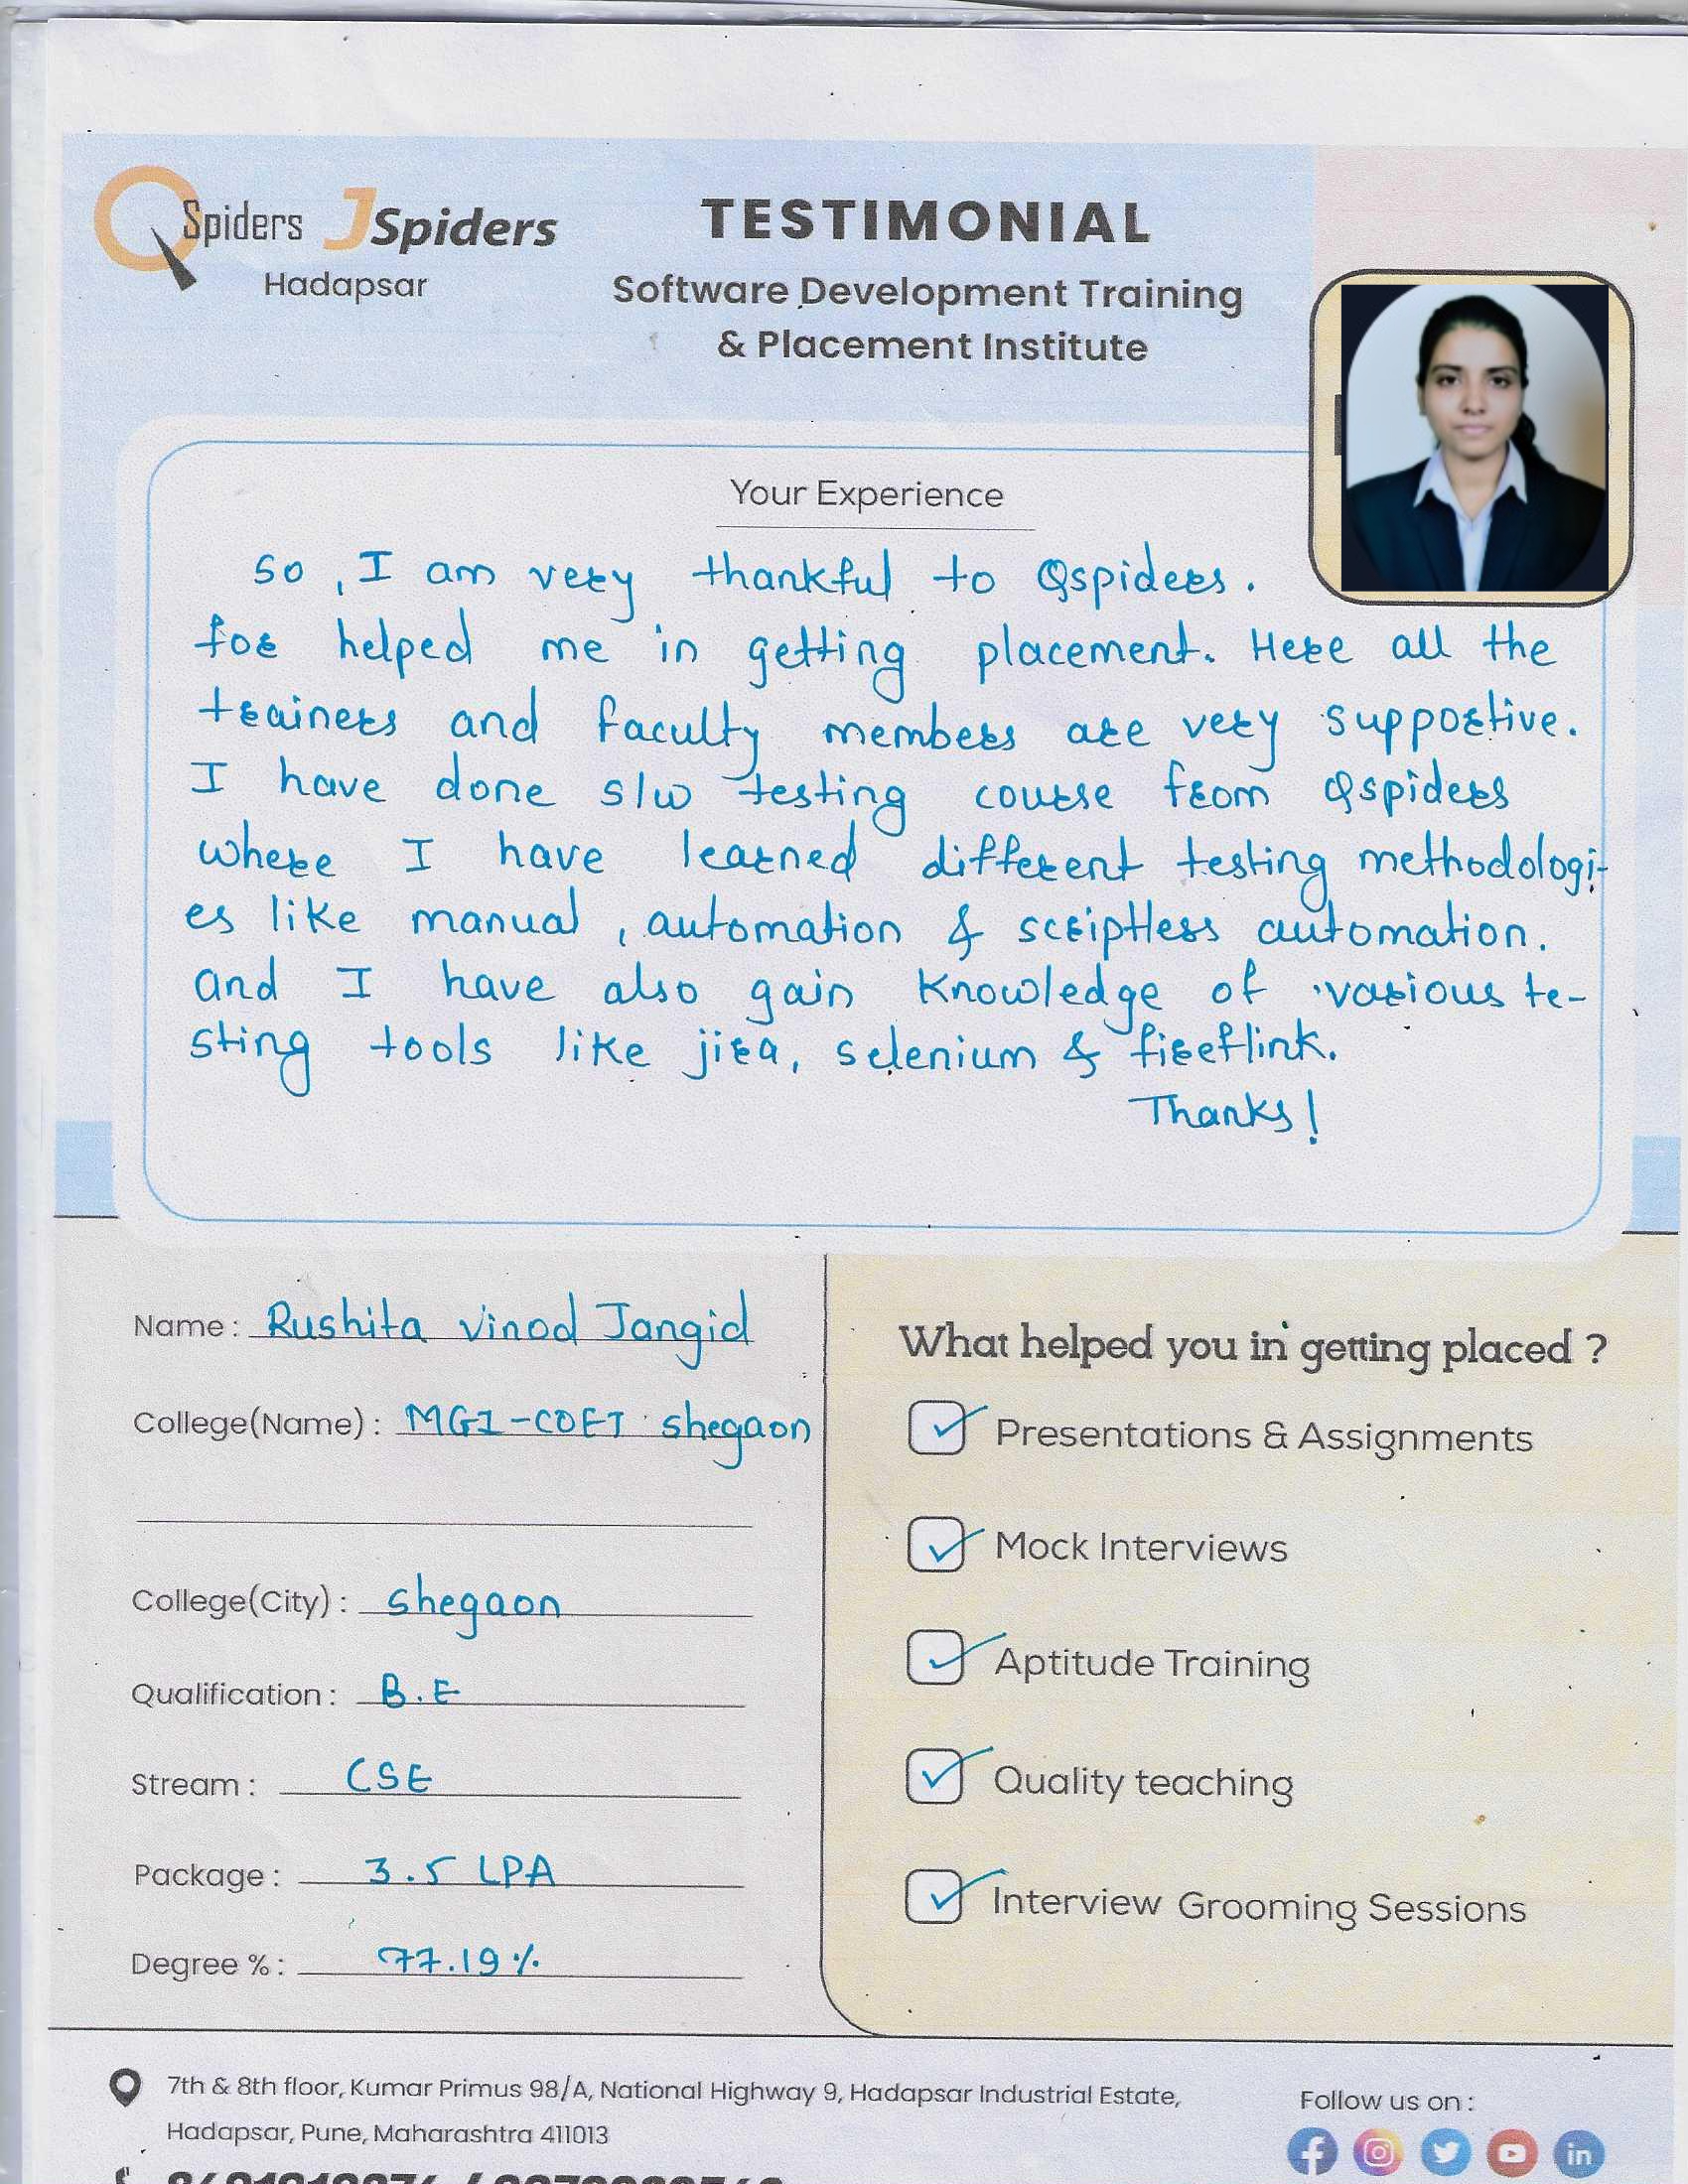 QSpiders JSpiders
Hadapsar
TESTIMONIAL
Software Development Training
& Placement Institute
Your Experience
So, I am very thankful to Qspiders.
for helped me in getting placement. Here all the
trainers and faculty members are very supportive.
I have done s/w testing course from Qspiders
where I have learned different testing methodologi-
es like manual, automation & scriptless automation.
and I have also gain knowledge of various te-
sting tools like jira, selenium & fireflink.
Thanks!
Name: Rushita Vinod Jangid
College(Name): MGI-COET shegaon
College(City): shegaon
Qualification: B.E
Stream: CSE
Package: 3.5 LPA
Degree %: 77.19%
What helped you in getting placed ?
Presentations & Assignments
Mock Interviews
Aptitude Training
Quality teaching
Interview Grooming Sessions
7th & 8th floor, Kumar Primus 98/A, National Highway 9, Hadapsar Industrial Estate,
Hadapsar, Pune, Maharashtra 411013
Follow us on :